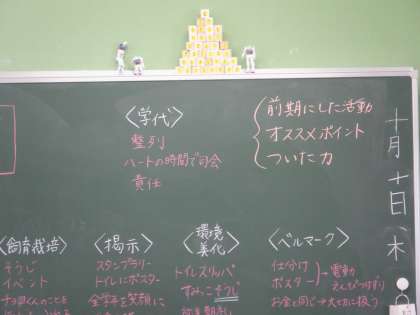 〈学代〉
整列
ハートの時間で司会
責任
前期にした活動
オススメポイント
ついた力
十月十日(木
〈飼育栽培〉
そうじ
イベント
〈掲示〉
スタンプラリー
トイレにポスター
全学年を笑顔に
〈環境美化〉
トイレスリッパ
すみっこそうじ
〈ベルマーク〉
仕分け
ポスター
→電動
えんぴつけずり
お金と同じ→大切に扱う